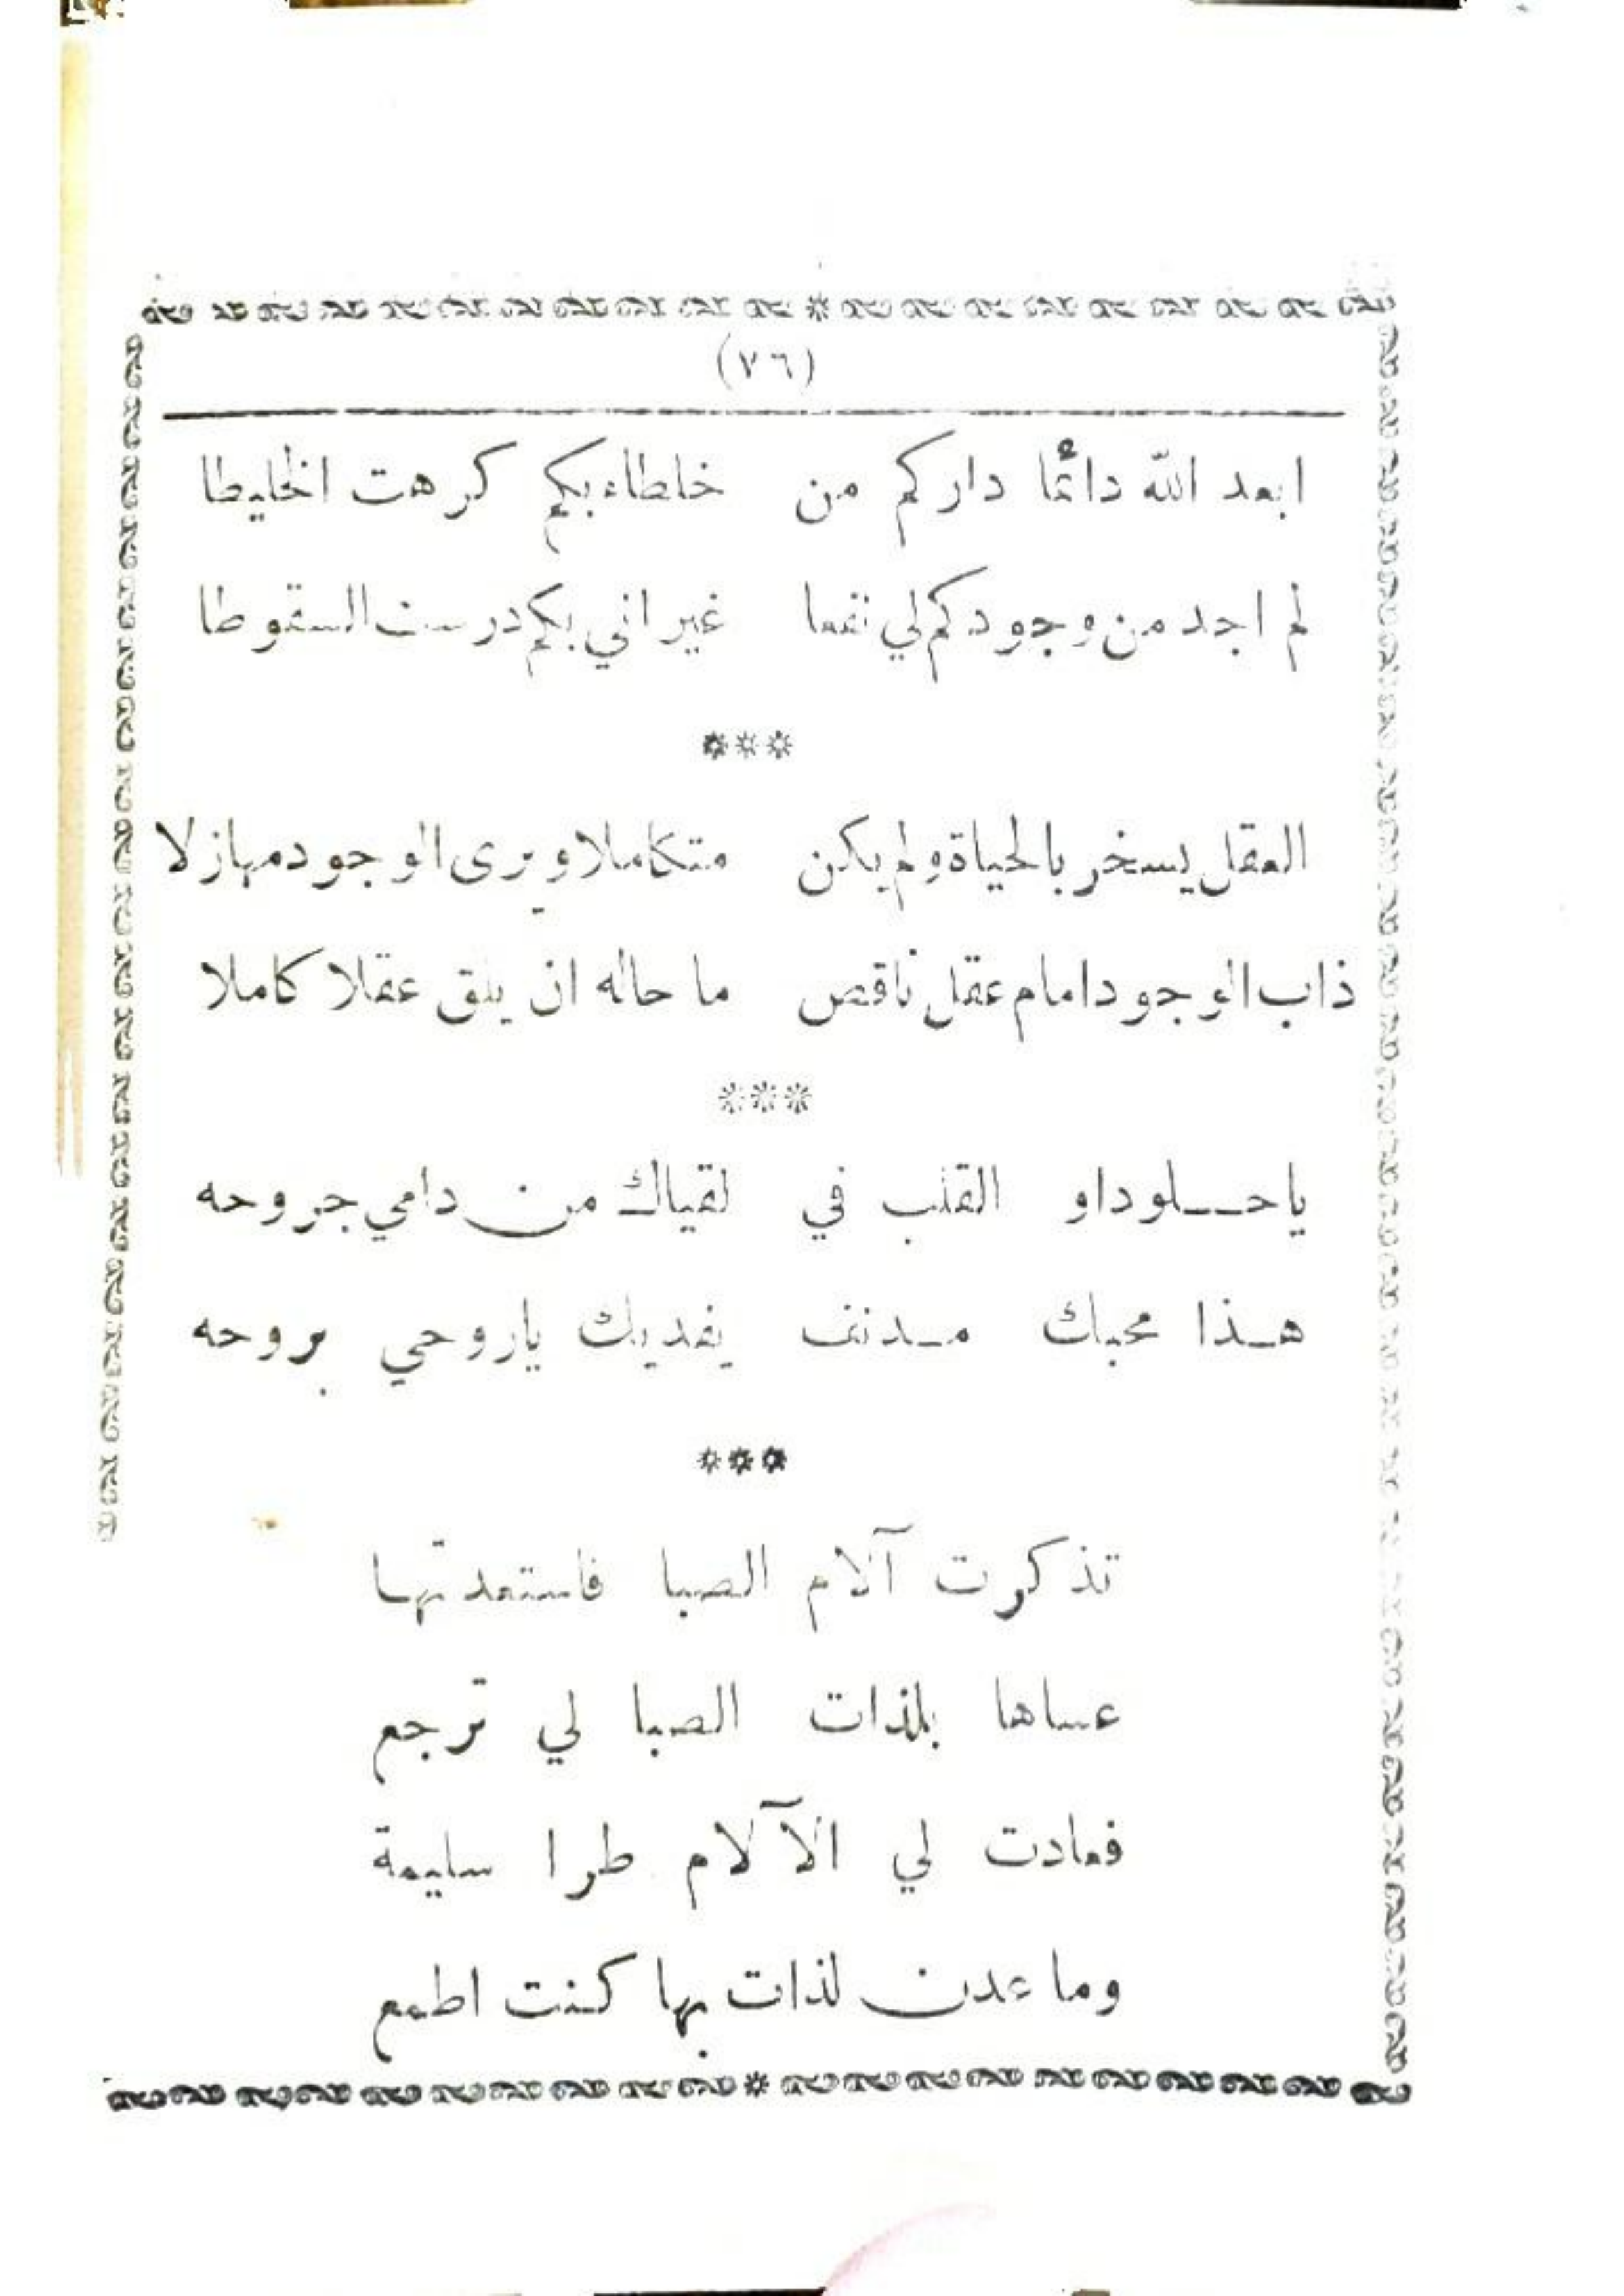 (٧٦)
ابعد الله دائما داركم من خلطاء بكم كرهت الخليطا
لم اجد من وجودكم لي نفعا غير اني بكم درست السقوطا
***
العقل يسخر بالحياة ولم يكن متكاملا ويرى الوجود مهازلا
ذاب الوجود امام عقل ناقص ما حاله ان يلق عقلا كاملا
***
يا حـــلو داو القلب في لقياك من دامي جروحه
هـذا محبك مـدنف يفديك ياروحي بروحه
***
تذكرت آلام الصبا فاستعدتها
عساها بلذات الصبا لي ترجع
فعادت لي الآلام طرا سليمة
وما عدن لذات بها كنت اطمع